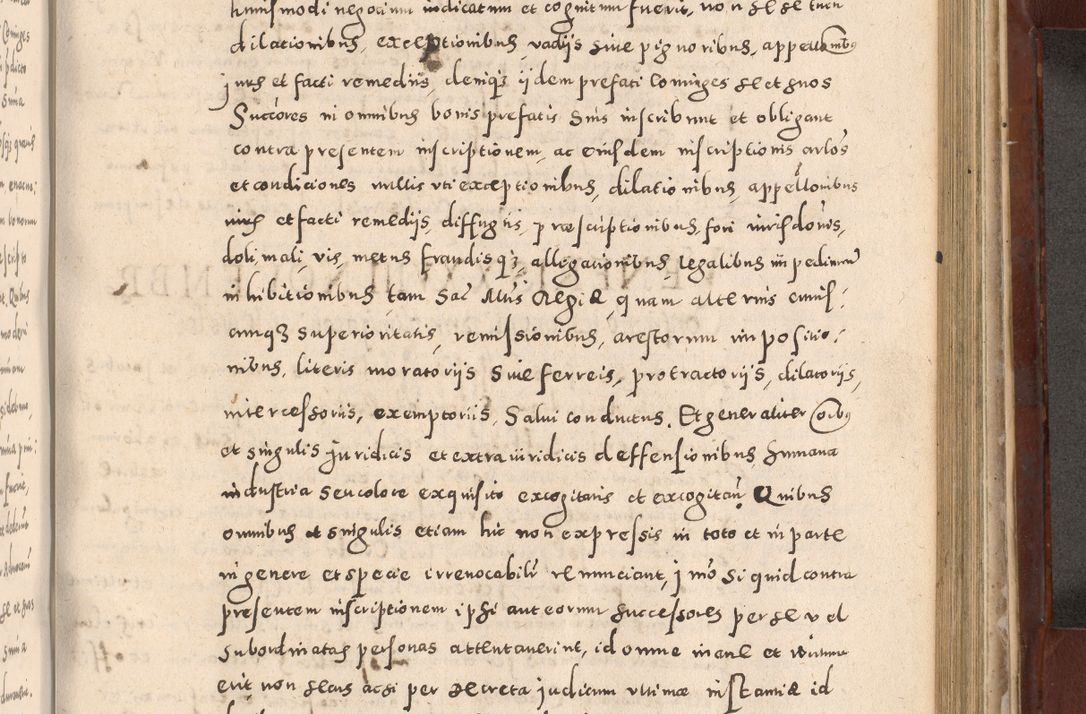 huiusmodi negocium iudicatum et cognitum fuerit, non se se tueri
dilationibus, exceptionibus, vadijs siue pignoribus, appellationibus
juris et facti remedijs, deniqz ijdem prefati Coniuges se et suos
Succores in omnibus bonis prefatis suis inscribunt et obligant
contra presentem inscriptionem, ac eiusdem inscriptionis arlos
et condiciones nullis vti exceptionibus, dilationibus, appellonibus
iuris et facti remedijs, diffugijs, prescriptionibus, fori iurisdonis,
doli, mali, vis, metus fraudisqz, allegationibus, legalibus impedimen
inhibitionibus, tam Sac Mtis Regiæ, quam alterius cuius:
cunqz superioritatis, remissionibus, arestorum impositio:
nibus, literis moratorijs siue ferreis, protractorijs, dilatorijs,
intercessoriis, exemptoriis, Salui conductus. Et generaliter oibus
et singulis juridicis et extraiuridicis deffensionibus, humana
industria seu colore exquisito excogitatis et excogitan. Quibus
omnibus et singulis etiam hic non expressis in toto et in parte
in genere et specie irreuocabilr renunciant, jmo si quid contra
presentem inscriptionem ipsi aut eorum successores per se vel
subordinatas personas attentauerint, id omne inane et irritum
erit, non secus ac si per decreta judicum vltimæ instantiæ id